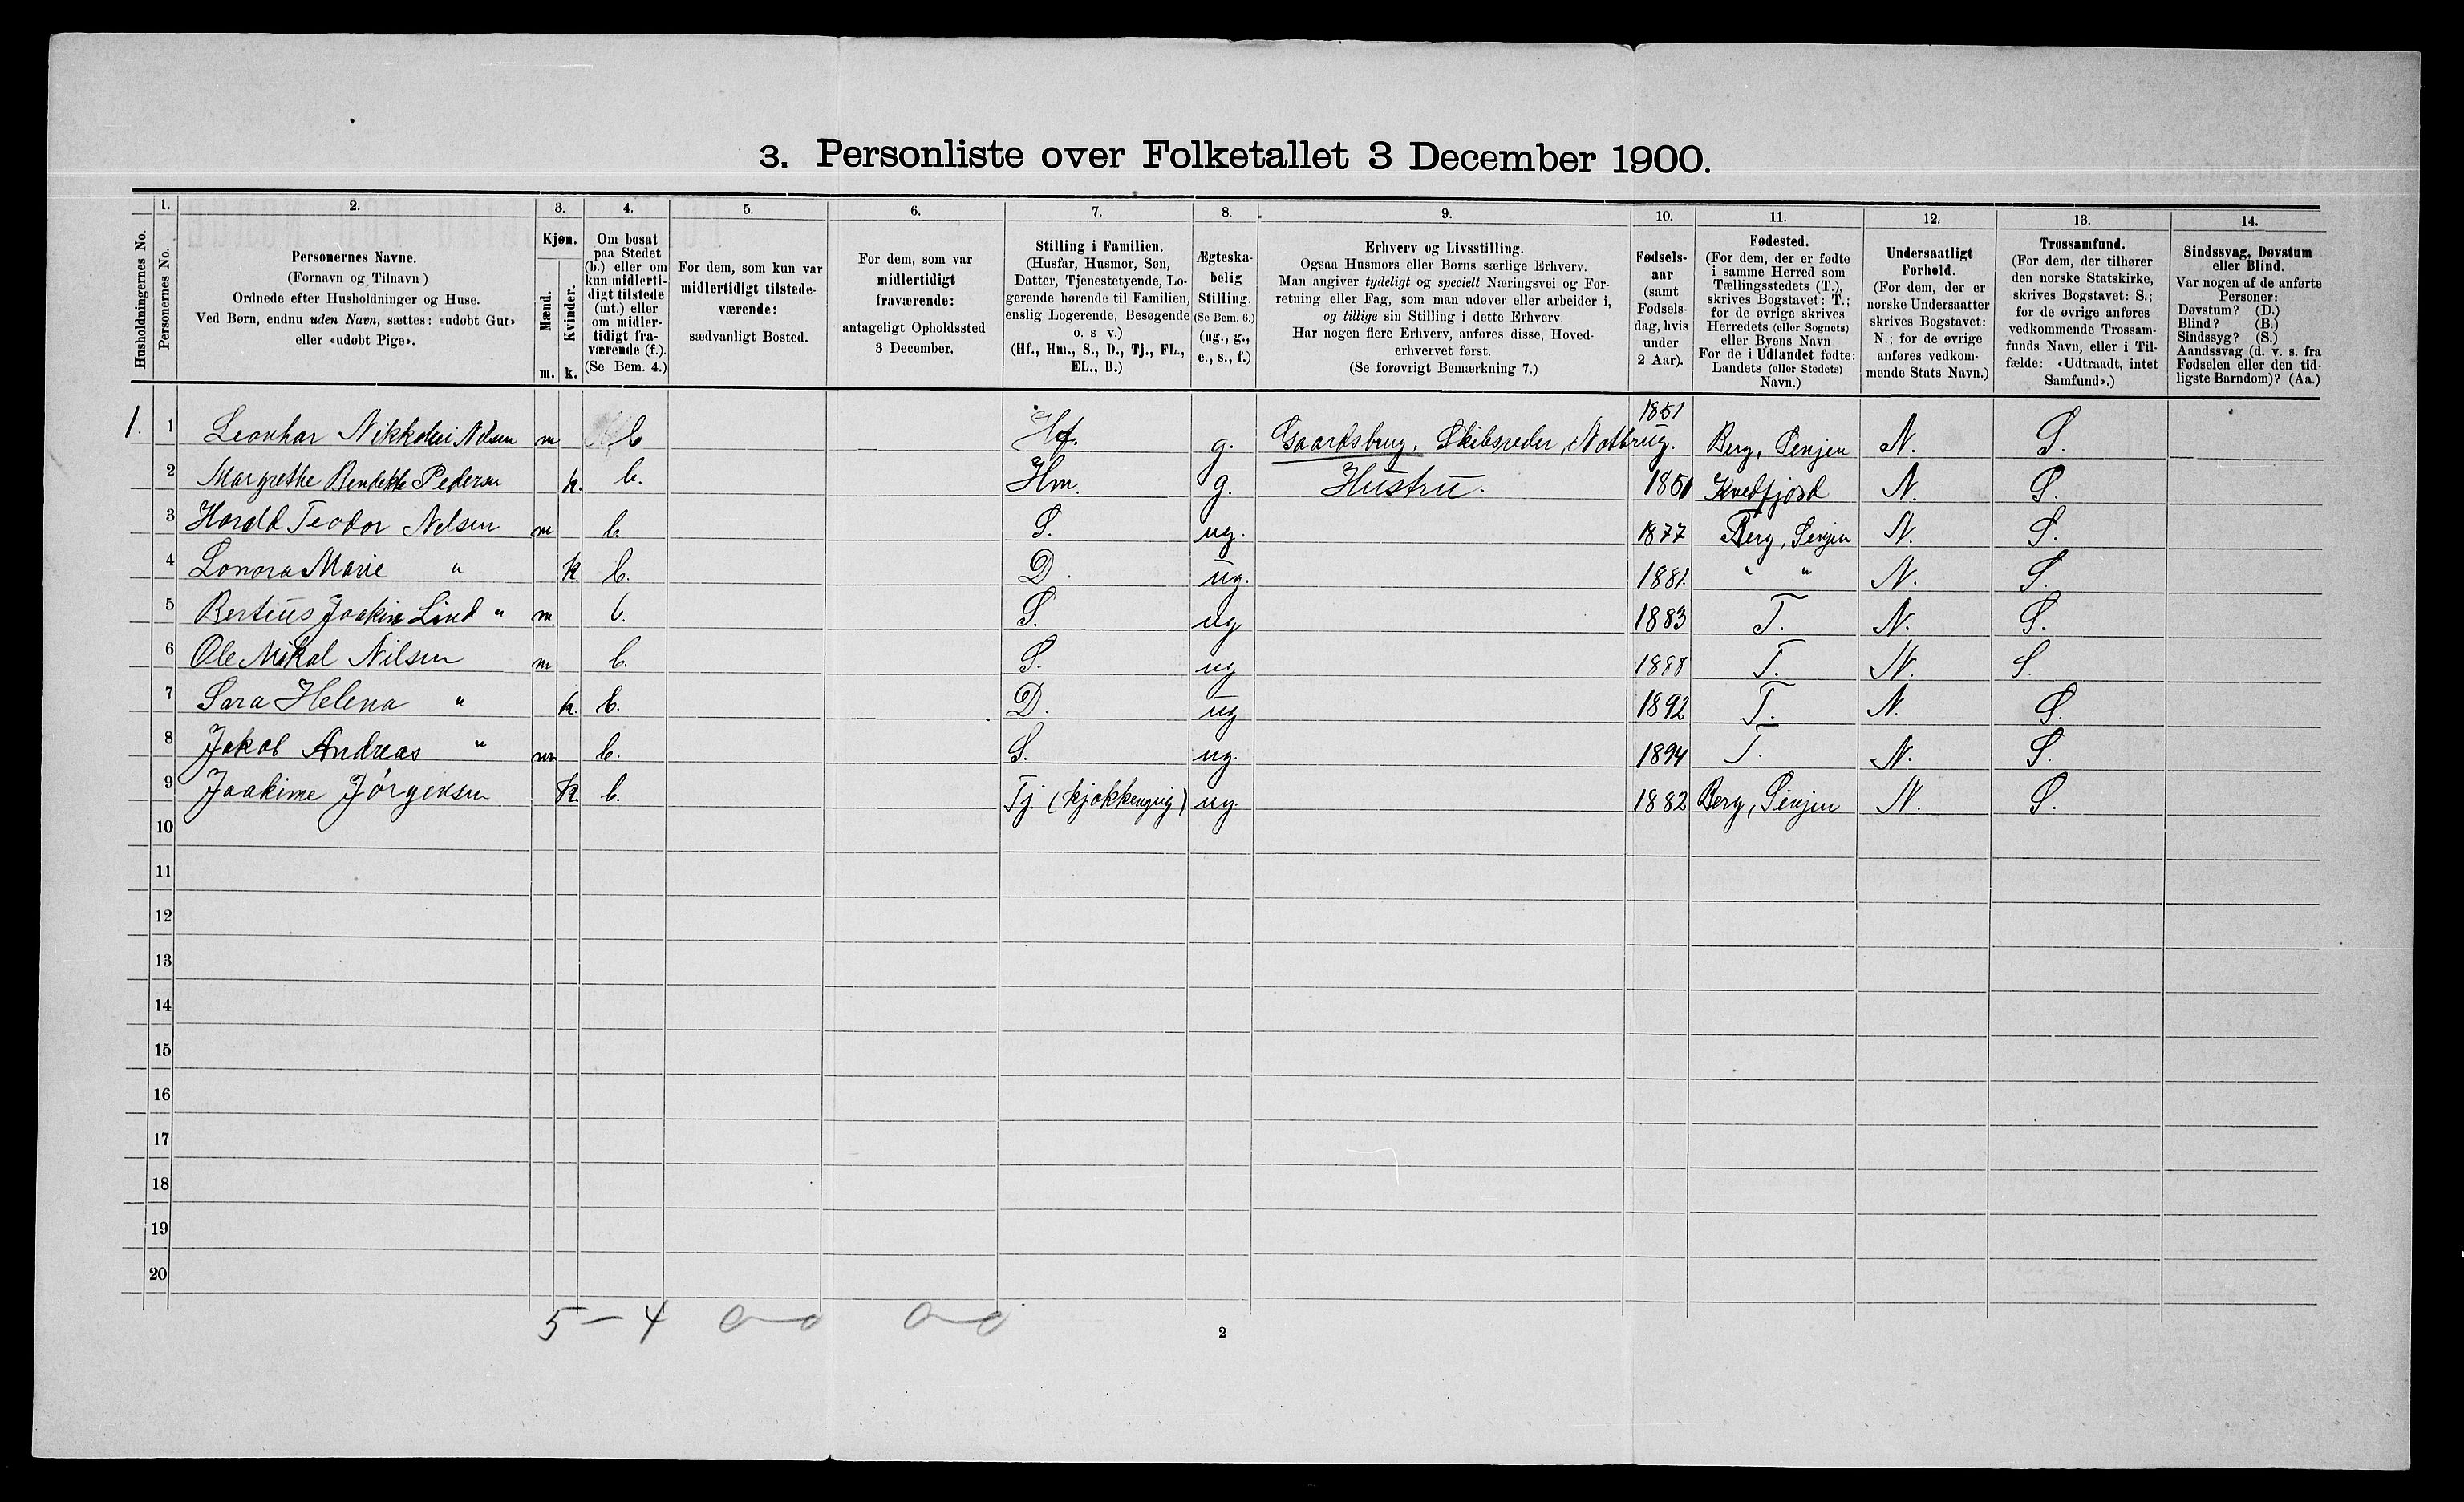 3. Personliste over Folketallet 3 December 1900.
Husholdningernes No.
1.
Personernes No.
2.
Personernes Navne.
(Fornavn og Tilnavn)
Ordnede efter Husholdninger og Huse.
Ved Børn, endnu uden Navn, sættes: «udøbt Gut»
eller «udøbt Pige».
3.
Kjøn.
Mænd.
Kvinder.
m. k.
4.
Om bosat
paa Stedet
(b.) eller om
kun midlerti-
digt tilstede
(mt.) eller
om midler-
tidigt fra-
værende (f.).
(Se Bem. 4.)
5.
For dem, som kun var
midlertidigt tilstede-
værende:
sædvanligt Bosted.
6.
For dem, som var
midlertidigt
fraværende:
antageligt Opholdssted
3 December.
7.
Stilling i Familien.
(Husfar, Husmor, Søn,
Datter, Tjenestetyende, Lo-
gerende hørende til Familien,
enslig Logerende, Besøgende
o. s v.)
(Hf., Hm., S., D., Tj., FL.,
EL., B.)
8.
Ægteska-
belig
Stilling.
(Se Bem. 6.)
(ug., g.,
e., s., f.)
9.
Erhverv og Livsstilling.
Ogsaa Husmors eller Børns særlige Erhverv.
Man angiver tydeligt og specielt Næringsvei og For-
retning eller Fag, som man udøver eller arbeider i,
og tillige sin Stilling i dette Erhverv.
Har nogen flere Erhverv, anføres disse, Hoved-
erhvervet først.
(Se forøvrigt Bemærkning 7.)
10.
Fødsels-
aar
(samt
Fødsels-
dag, hvis
under
2 Aar).
11.
Fødested.
(For dem, der er fødte
i samme Herred som
Tællingsstedets (T.),
skrives Bogstavet: T.;
for de øvrige skrives
Herredets (eller Sognets)
eller Byens Navn
For de i Udlandet fødte:
Landets (eller Stedets)
Navn.)
12.
Undersaatligt
Forhold.
(For dem, der er
norske Undersaatter
skrives Bogstavet:
N.; for de øvrige
anføres vedkom-
mende Stats Navn.)
13.
Trossamfund.
(For dem, der tilhører
den norske Statskirke,
skrives Bogstavet: S.;
for de øvrige anføres
vedkommende Trossam-
funds Navn, eller i Til-
fælde: «Udtraadt, intet
Samfund».)
14.
Sindssvag, Døvstum
eller Blind.
Var nogen af de anførte
Personer:
Døvstum? (D.)
Blind? (B.)
Sindssyg? (S.)
Aandssvag (d. v. s. fra
Fødselen eller den tid-
ligste Barndom)? (Aa.)
1. 1 Leonhar Nikkolai Nilsen m b Hf. g. Gaardsbrug, Skibsreder, Notbrug. 1851 Berg, Senjen N. S.
2 Margrethe Bendekte Pedersen k. b. Hm. g. Hustru. 1851 Kvedfjord N. S.
3 Harald Teodor Nilsen m b. S. ug. 1877 Berg, Senjen N. S.
4 Lonora Marie " k. b. D. ug. 1881. " " N. S.
5 Bertius Joakim Lind " m. b. S. ug 1883 T. N. S.
6 Ole Mikal Nilsen m b. S. ug 1888 T. N. S.
7 Sara Helena " k. b. D. ug 1892 T. N. S.
8 Jakob Andreas " m b. S. ug. 1894 T. N. S.
9 Joakime Jörgensen k b. Tj. (kjøkkenpig) ug. 1882 Berg, Senjen N. S.
10
11
12
13
14
15
16
17
18
19
20
5 — 4 0—0 0—0
2